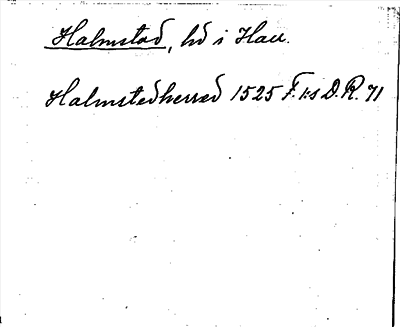 Halmstad, hd i Hall.
Halmstedherred 1525 F. I:s D. R. 71